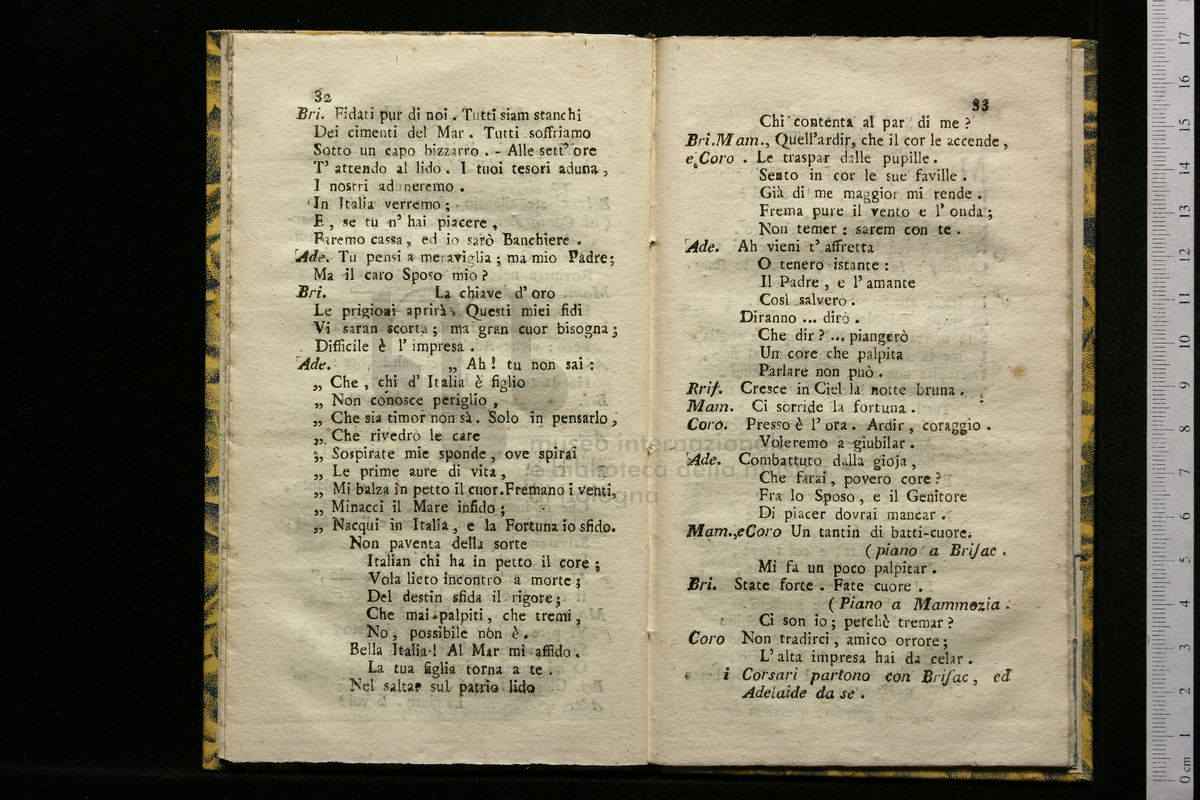 32
Bri. Fidati pur di noi. Tutti siam stanchi
Dei cimenti del Mar. Tutti soffriamo
Sotto un capo bizzarro. - Alle sett' ore
T' attendo al lido. I tuoi tesori aduna,
I nostri aduneremo.
In Italia verremo;
E, se tu n' hai piacere,
Faremo cassa, ed io sarò Banchiere.
Ade. Tu pensi a meraviglia; ma mio Padre;
Ma il caro Sposo mio?
Bri. La chiave d' oro
Le prigioni aprirà. Questi miei fidi
Vi saran scorta; ma gran cuor bisogna;
Difficile è l' impresa.
Ade. „ Ah! tu non sai:
„ Che, chi d' Italia è figlio
„ Non conosce periglio,
„ Che sia timor non sà. Solo in pensarlo,
„ Che rivedrò le care
„ Sospirate mie sponde, ove spirai
„ Le prime aure di vita,
„ Mi balza in petto il cuor. Fremano i venti,
„ Minacci il Mare infido;
„ Nacqui in Italia, e la Fortuna io sfido.
Non paventa della sorte
Italian chi ha in petto il core;
Vola lieto incontro a morte;
Del destin sfida il rigore;
Che mai palpiti, che tremi,
No, possibile nòn è.
Bella Italia! Al Mar mi affido.
La tua figlia torna a te.
Nel saltar sul patrio lido
33
Chi contenta al par di me?
Bri. Mam., Quell'ardir, che il cor le accende,
e Coro. Le traspar dalle pupille.
Sento in cor le sue faville.
Già di me maggior mi rende.
Frema pure il vento e l' onda;
Non temer: sarem con te.
Ade. Ah vieni t' affretta
O tenero istante:
Il Padre, e l' amante
Così salverò.
Diranno ... dirò.
Che dir? ... piangerò
Un core che palpita
Parlare non può.
Rriſ. Cresce in Ciel la notte bruna.
Mam. Ci sorride la fortuna.
Coro. Presso è l' ora. Ardir, coraggio.
Voleremo a giubilar.
Ade. Combattuto dalla gioja,
Che farai, povero core?
Fra lo Sposo, e il Genitore
Di piacer dovrai mancar.
Mam., e Coro Un tantin di batti-cuore.
(piano a Briſac.
Mi fa un poco palpitar.
Bri. State forte. Fate cuore.
(Piano a Mammozia.
Ci son io; perchè tremar?
Coro Non tradirci, amico orrore;
L' alta impresa hai da celar.
i Corsari partono con Briſac, ed
Adelaide da se.
museo internazionale
e biblioteca della musica
di bologna
17
16
15
14
13
12
11
10
9
8
7
6
5
4
3
2
1
0 cm